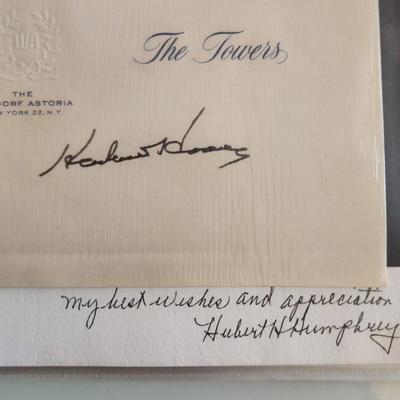 WA
The Towers
THE
DORF ASTORIA
W YORK 22, N.Y.
Herbert Hoover
my best wishes and appreciation
Hubert H Humphrey